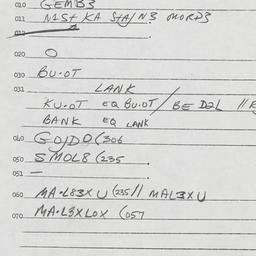 010 GEMB3
011 N1St KA StAJN3 MORD3
012
020 O
030 BU.OT
031 LANK
KU.OT EQ BU.OT / BE D2L //
BANK EQ LANK
040 GOJDO (306
050 SMOL8 (235
051 —
060 MA.L83XU (235 // MAL3XU
070 MA.L3XLOX (057